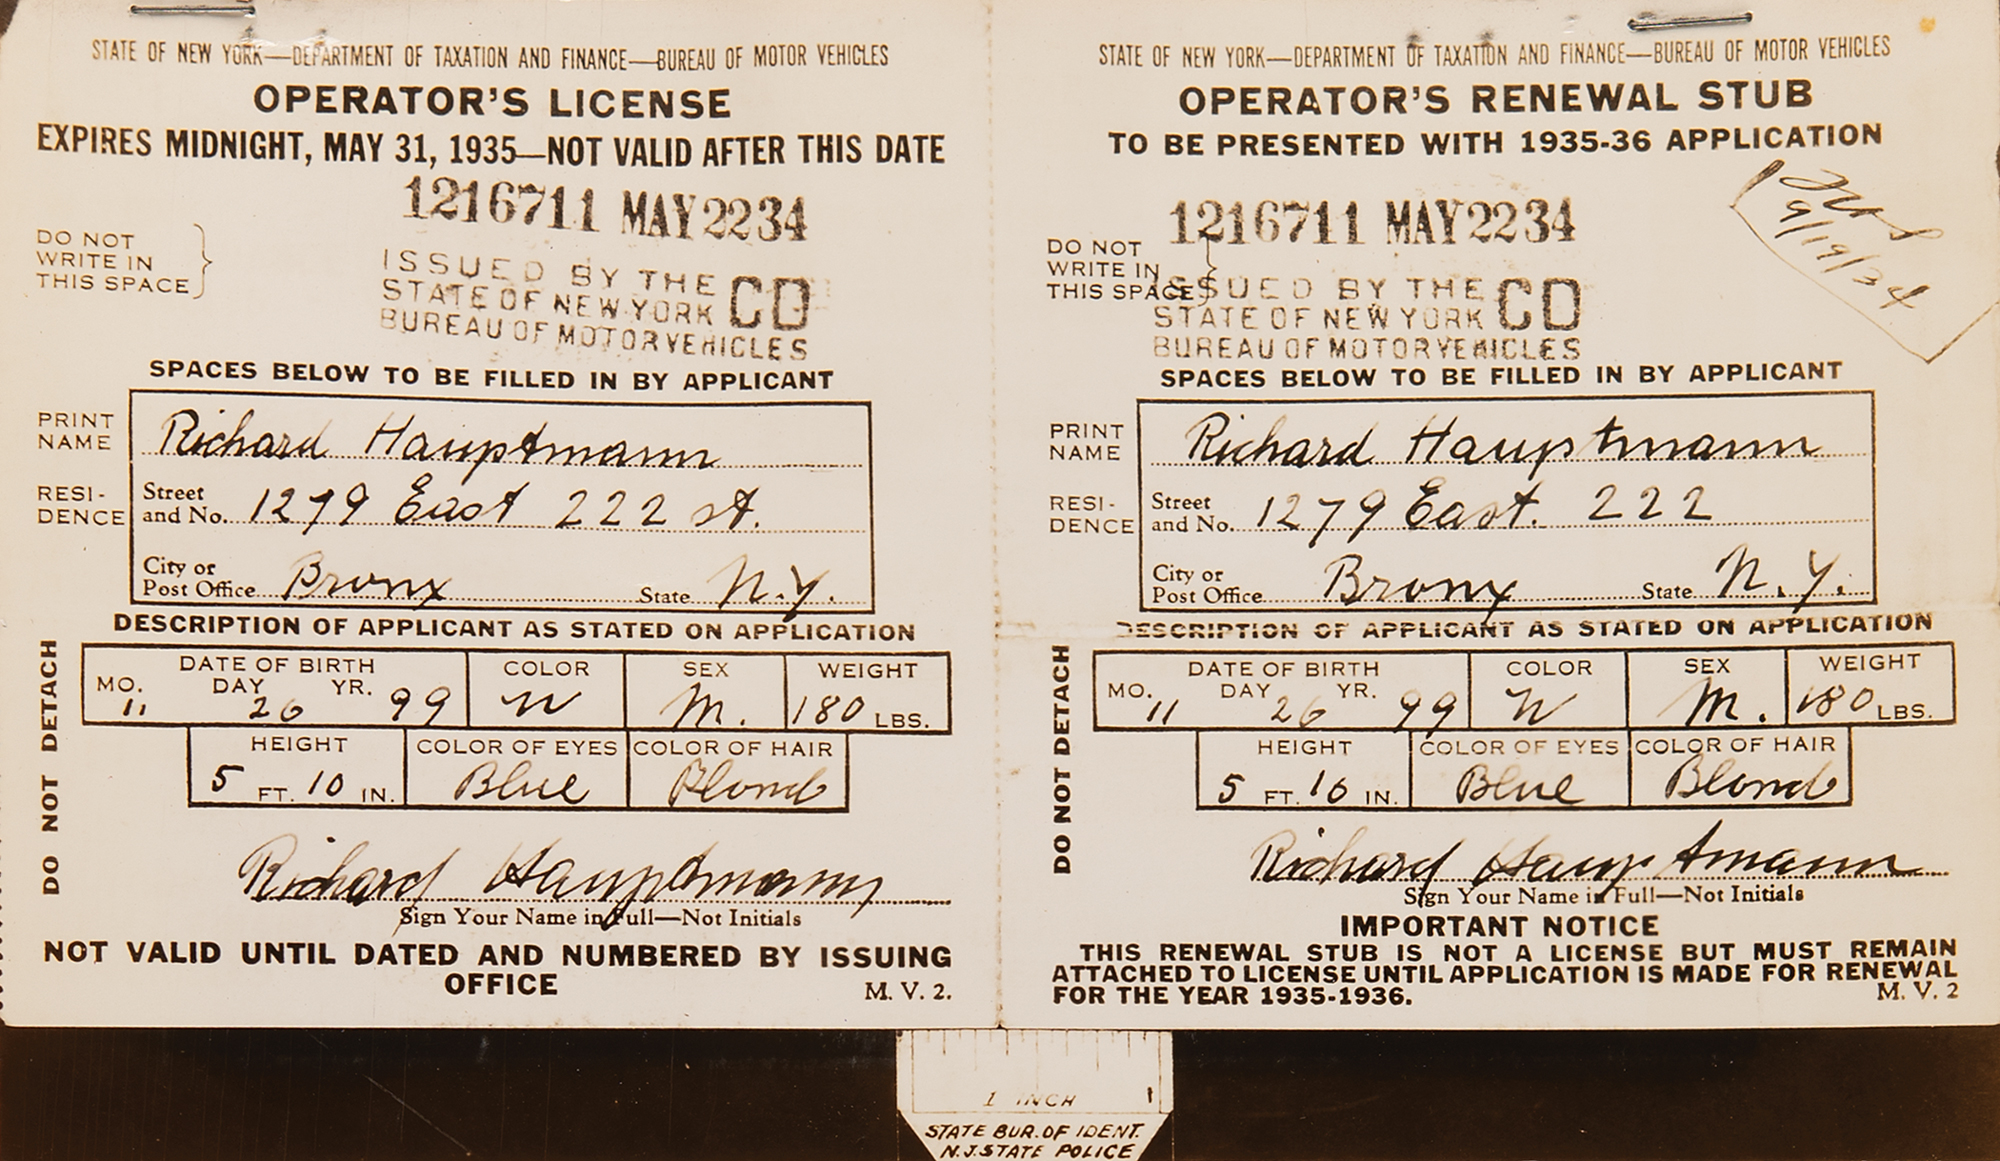 STATE OF NEW YORK—DEPARTMENT OF TAXATION AND FINANCE—BUREAU OF MOTOR VEHICLES
OPERATOR'S LICENSE
EXPIRES MIDNIGHT, MAY 31, 1935—NOT VALID AFTER THIS DATE
1216711 MAY 22 34
DO NOT
WRITE IN
THIS SPACE
ISSUED BY THE
STATE OF NEW YORK CD
BUREAU OF MOTOR VEHICLES
SPACES BELOW TO BE FILLED IN BY APPLICANT
PRINT
NAME
Richard Hauptmann
RESI-
DENCE
Street
and No. 1279 East 222 st.
City or
Post Office Bronx State N.Y.
DESCRIPTION OF APPLICANT AS STATED ON APPLICATION
DO NOT DETACH
DATE OF BIRTH COLOR SEX WEIGHT
MO. DAY YR.
11 26 99 W M. 180 LBS.
HEIGHT COLOR OF EYES COLOR OF HAIR
5 FT. 10 IN. Blue Blond
Richard Hauptmann
Sign Your Name in Full—Not Initials
NOT VALID UNTIL DATED AND NUMBERED BY ISSUING
OFFICE
M. V. 2.
STATE OF NEW YORK—DEPARTMENT OF TAXATION AND FINANCE—BUREAU OF MOTOR VEHICLES
OPERATOR'S RENEWAL STUB
TO BE PRESENTED WITH 1935-36 APPLICATION
9/19/34
1216711 MAY 22 34
DO NOT
WRITE IN
THIS SPACE
ISSUED BY THE
STATE OF NEW YORK CD
BUREAU OF MOTOR VEHICLES
SPACES BELOW TO BE FILLED IN BY APPLICANT
PRINT
NAME
Richard Hauptmann
RESI-
DENCE
Street
and No. 1279 East. 222
City or
Post Office Bronx State N.Y.
DESCRIPTION OF APPLICANT AS STATED ON APPLICATION
DO NOT DETACH
DATE OF BIRTH COLOR SEX WEIGHT
MO. DAY YR.
11 26 99 W M. 180 LBS.
HEIGHT COLOR OF EYES COLOR OF HAIR
5 FT. 10 IN. Blue Blond
Richard Hauptmann
Sign Your Name in Full—Not Initials
IMPORTANT NOTICE
THIS RENEWAL STUB IS NOT A LICENSE BUT MUST REMAIN
ATTACHED TO LICENSE UNTIL APPLICATION IS MADE FOR RENEWAL
FOR THE YEAR 1935-1936.
M. V. 2
1 INCH
STATE BUR. OF IDENT.
N.J. STATE POLICE